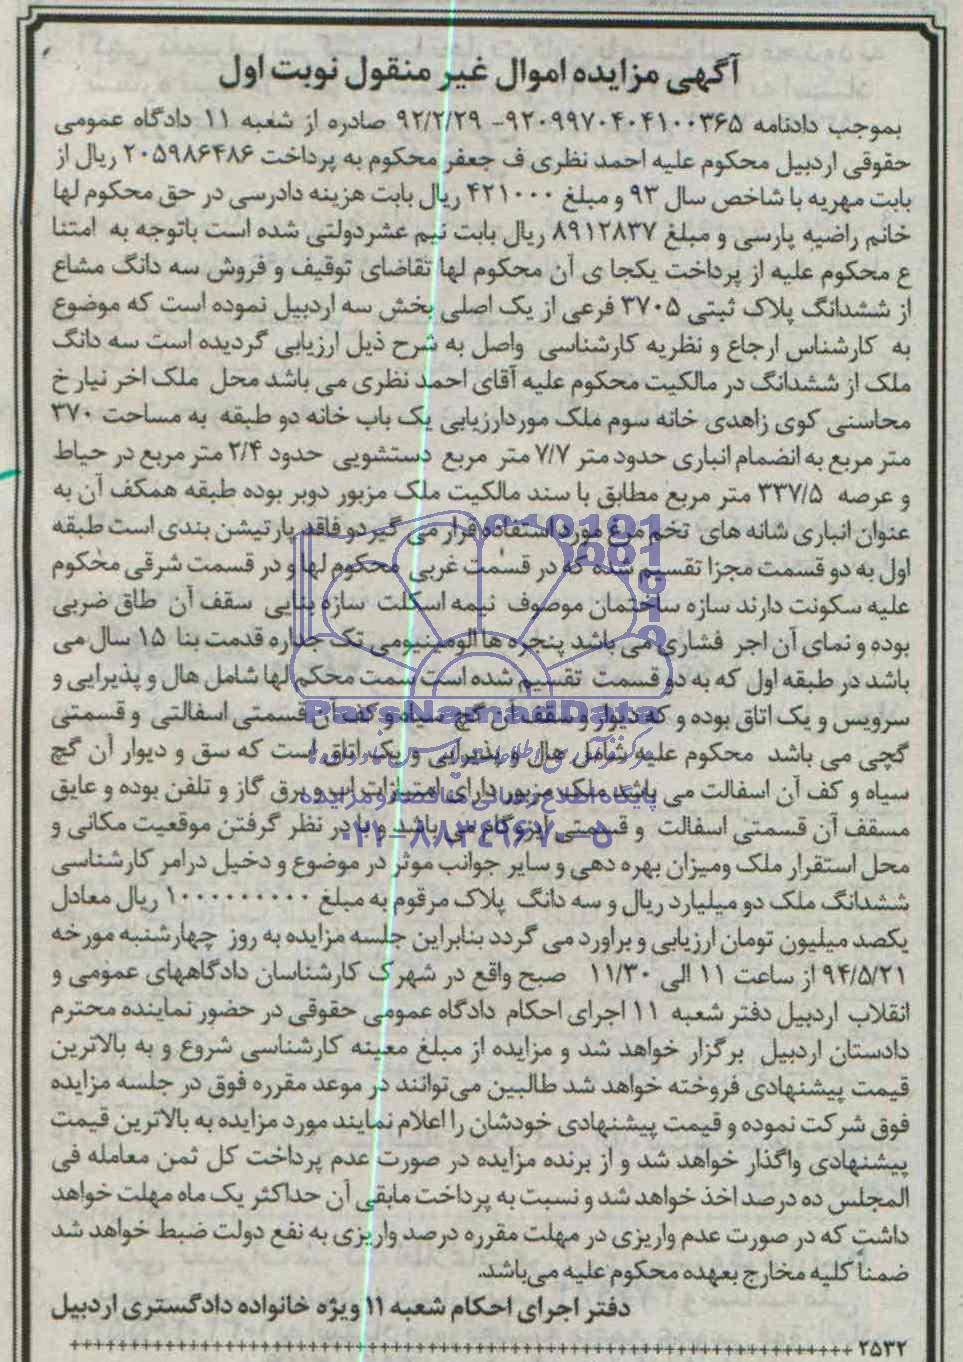 آگهی مزایده اموال غیر منقول نوبت اول
بموجب دادنامه ۹۲۰۹۹۷۰۴۰۴۱۰۰۳۶۵- ۹۲/۲/۲۹ صادره از شعبه ۱۱ دادگاه عمومی
حقوقی اردبیل محکوم علیه احمد نظری ف جعفر محکوم به پرداخت ۲۰۵۹۸۶۴۸۶ ریال از
بابت مهریه با شاخص سال ۹۳ و مبلغ ۴۲۱۰۰۰ ریال بابت هزینه دادرسی در حق محکوم لها
خانم راضیه پارسی و مبلغ ۸۹۱۲۸۳۷ ریال بابت نیم عشردولتی شده است باتوجه به امتنا
ع محکوم علیه از پرداخت یکجا ی آن محکوم لها تقاضای توقیف و فروش سه دانگ مشاع
از ششدانگ پلاک ثبتی ۳۷۰۵ فرعی از یک اصلی بخش سه اردبیل نموده است که موضوع
به کارشناس ارجاع و نظریه کارشناسی واصل به شرح ذیل ارزیابی گردیده است سه دانگ
ملک از ششدانگ در مالکیت محکوم علیه آقای احمد نظری می باشد محل ملک اخر نیار خ
محاسنی کوی زاهدی خانه سوم ملک موردارزیابی یک باب خانه دو طبقه به مساحت ۳۷۰
متر مربع به انضمام انباری حدود متر ۷/۷ متر مربع دستشویی حدود ۲/۴ متر مربع در حیاط
و عرصه ۳۳۷/۵ متر مربع مطابق با سند مالکیت ملک مزبور دوبر بوده طبقه همکف آن به
عنوان انباری شانه های تخم مرغ مورد استفاده قرار می گیردو فاقد پارتیشن بندی است طبقه
اول به دو قسمت مجزا تقسیم شده که در قسمت غربی محکوم لها و در قسمت شرقی محکوم
علیه سکونت دارند سازه ساختمان موصوف نیمه اسکلت سازه بنایی سقف آن طاق ضربی
بوده و نمای آن اجر فشاری می باشد پنجره ها الومینیومی تک جداره قدمت بنا ۱۵ سال می
باشد در طبقه اول که به دو قسمت تقسیم شده است سمت محکم لها شامل هال و پذیرایی و
سرویس و یک اتاق بوده و که دیوار و سقف آن گچ سیاه و کف آن قسمتی اسفالتی و قسمتی
گچی می باشد محکوم علیه شامل هال و پذیرایی و یک اتاق است که سق و دیوار آن گچ
سیاه و کف آن اسفالت می باشد ملک مزبور دارای امتیازات اب و برق گاز و تلفن بوده و عایق
مسقف آن قسمتی اسفالت و قسمتی ایزوگام می باشد و با در نظر گرفتن موقعیت مکانی و
محل استقرار ملک ومیزان بهره دهی و سایر جوانب موثر در موضوع و دخیل درامر کارشناسی
ششدانگ ملک دو میلیارد ریال و سه دانگ پلاک مرقوم به مبلغ ۱۰۰۰۰۰۰۰۰۰ ریال معادل
یکصد میلیون تومان ارزیابی و براورد می گردد بنابراین جلسه مزایده به روز چهارشنبه مورخه
۹۴/۵/۲۱ از ساعت ۱۱ الی ۱۱/۳۰ صبح واقع در شهرک کارشناسان دادگاههای عمومی و
انقلاب اردبیل دفتر شعبه ۱۱ اجرای احکام دادگاه عمومی حقوقی در حضور نماینده محترم
دادستان اردبیل برگزار خواهد شد و مزایده از مبلغ معینه کارشناسی شروع و به بالاترین
قیمت پیشنهادی فروخته خواهد شد طالبین می‌توانند در موعد مقرره فوق در جلسه مزایده
فوق شرکت نموده و قیمت پیشنهادی خودشان را اعلام نمایند مورد مزایده به بالاترین قیمت
پیشنهادی واگذار خواهد شد و از برنده مزایده در صورت عدم پرداخت کل ثمن معامله فی
المجلس ده درصد اخذ خواهد شد و نسبت به پرداخت مابقی آن حداکثر یک ماه مهلت خواهد
داشت که در صورت عدم واریزی در مهلت مقرره درصد واریزی به نفع دولت ضبط خواهد شد
ضمناً کلیه مخارج بعهده محکوم علیه می‌باشد.
دفتر اجرای احکام شعبه ۱۱ ویژه خانواده دادگستری اردبیل
۲۵۳۲
ParsNamadData
پایگاه اطلاع رسانی مناقصه و مزایده
۰۲۱-۸۸۳۴۹۶۷۰-۵